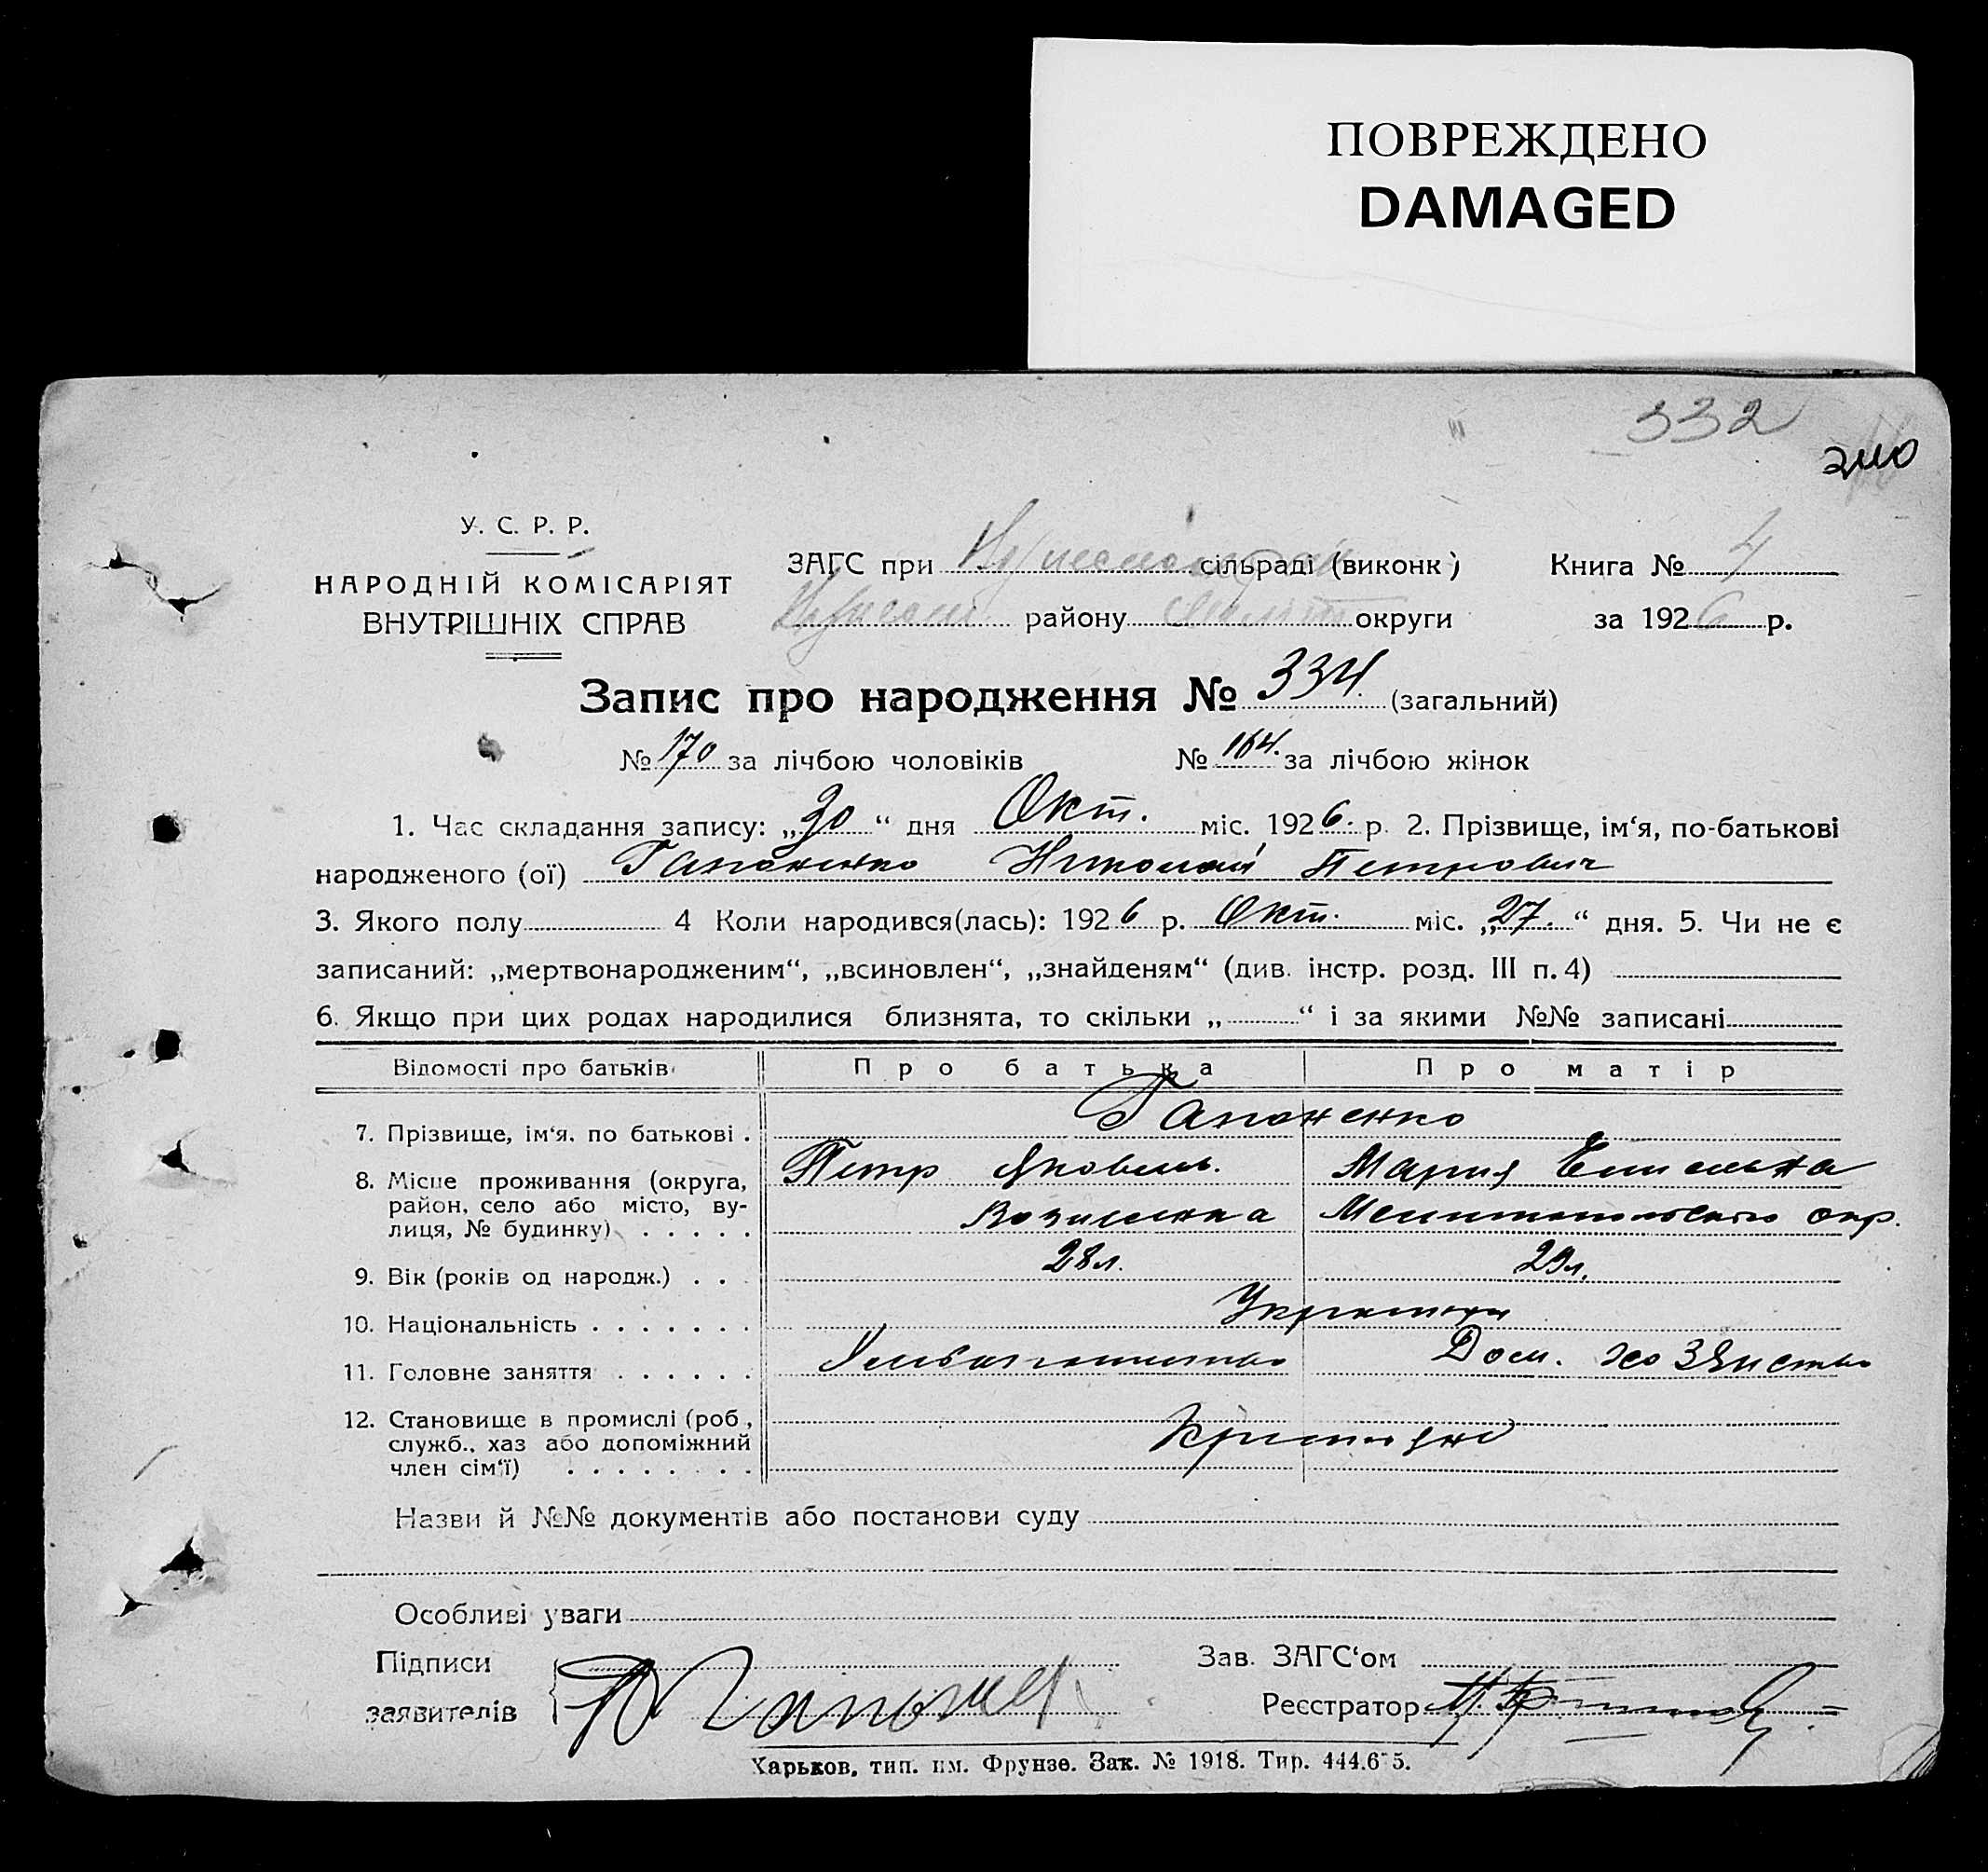 ПОВРЕЖДЕНО
DAMAGED
332
240
У. С. Р. Р.
НАРОДНІЙ КОМІСАРІЯТ
ВНУТРІШНІХ СПРАВ
ЗАГС при сільраді (виконк)
району округи
Книга № 4
за 1926 р.
Запис про народження № 334. (загальний)
№ 170 за лічбою чоловіків № 164. за лічбою жінок
1. Час складання запису: „30“ дня Окт. міс. 1926. р. 2. Прізвище, ім‘я, по-батькові
народженого (ої) Гапоненко Николай Петрович
3. Якого полу 4 Коли народився(лась): 1926 р. Окт. міс. „27.“ дня. 5. Чи не є
записаний: „мертвонародженим“, „всиновлен“, „знайденям“ (див. інстр. розд. III п. 4)
6. Якщо при цих родах народилися близнята, то скільки „ “ і за якими №№ записані
Відомості про батьків Про батька Про матір
Гапоненко
7. Прізвище, ім‘я. по батькові .
Петр Яковлев. Мария
8. Місце проживання (округа,
район, село або місто, ву-
лиця, № будинку) . . . . .
Мелитопольского окр.
9. Вік (років од народж.) . . . 28л. 29л.
10. Національність . . . . . . . Украинцы
11. Головне заняття . . . . . . Хлебопашество Дом. хозяйство
12. Становище в промислі (роб.,
служб., хаз або допоміжний
член сім‘ї) . . . . . . . .
Назви й №№ документів або постанови суду
Особливі уваги
Підписи
заявителів
Зав. ЗАГС‘ом
Реєстратор
Харьков, тип. им. Фрунзе. Зак. № 1918. Тир. 444.675.